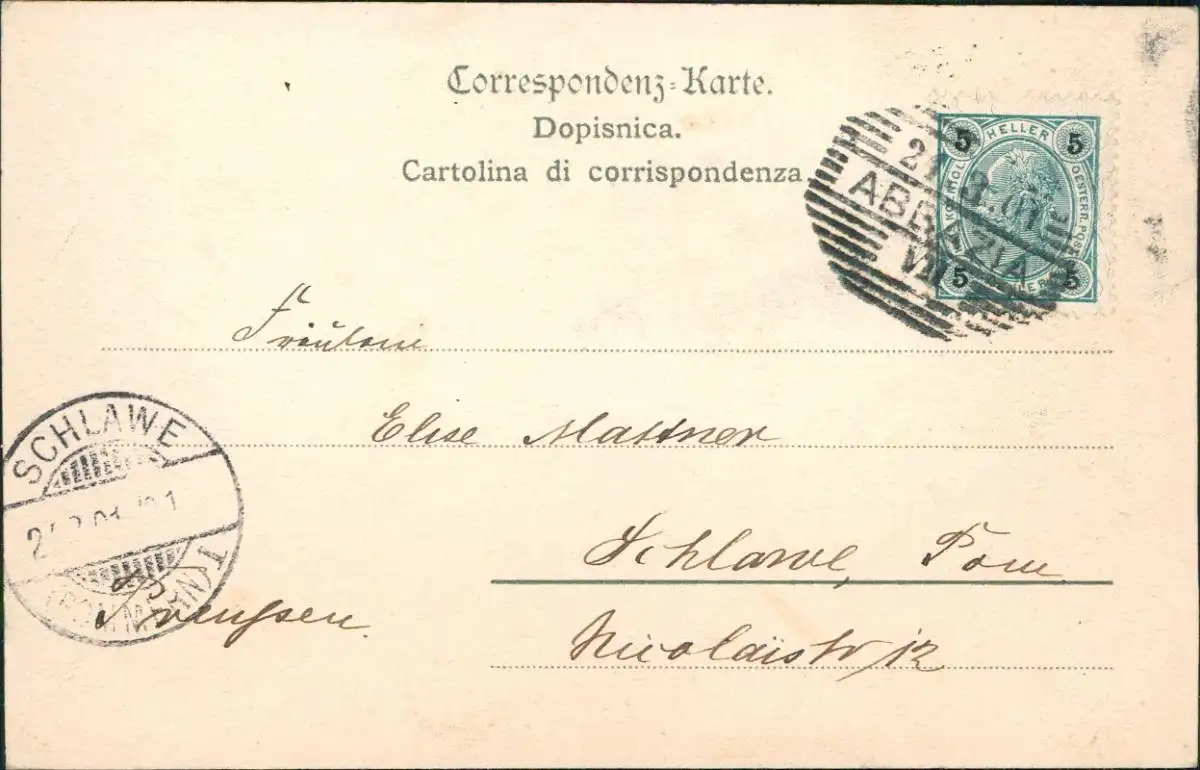 Correspondenz-Karte.
Dopisnica.
Cartolina di corrispondenza.
5 HELLER 5
OESTERR. POST
5 5
ABBAZIA
Fräulein
Elise Mattner
Schlawe, Pom
Nicolaistr 12
Preußen.
SCHLAWE
(POMMERN)